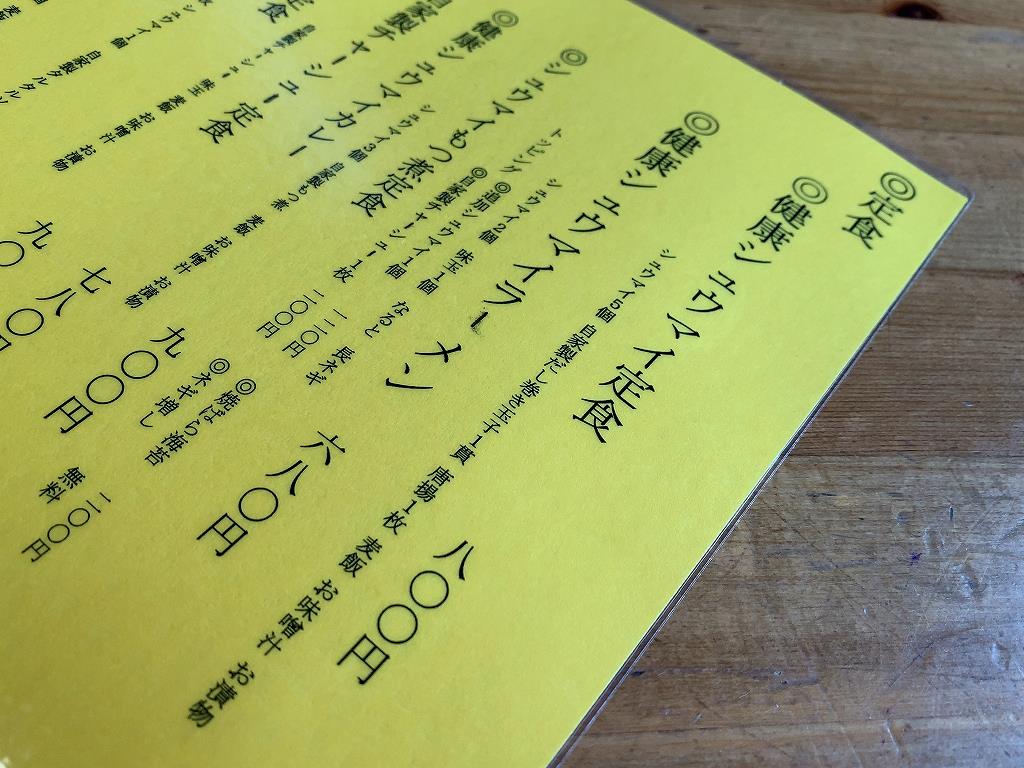 ◎定食
◎健康シュウマイ定食 八〇〇円
シュウマイ5個 自家製だし巻き玉子1貫 唐揚1枚 麦飯 お味噌汁 お漬物
◎健康シュウマイラーメン 六八〇円
シュウマイ2個 味玉1個 なると 長ネギ
トッピング ◎追加シュウマイ1個 一一〇円 ◎焼ばら海苔 一一〇円
◎自家製チャーシュー1枚 一一〇円 ◎ネギ増し 無料
◎シュウマイもつ煮定食 九〇〇円
シュウマイ3個 自家製もつ煮 麦飯 お味噌汁 お漬物
◎健康シュウマイカレー 七八〇円
自家製チャーシュー定食 九〇
自家製チャーシュー 味玉 麦飯 お味噌汁 お漬物
定食
シュウマイ1個 自家製タルタルソ